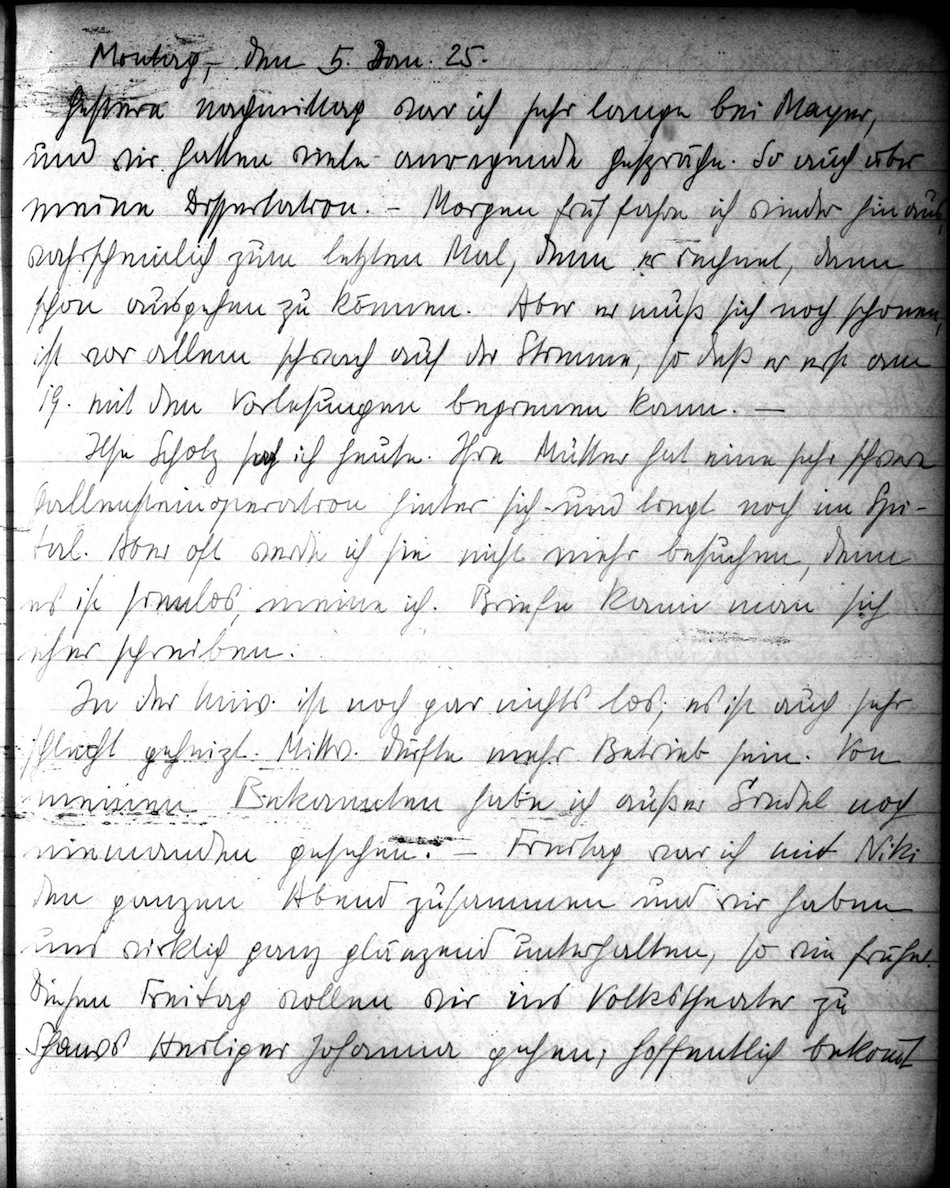 Montag, den 5. Jan. 25.
Gestern nachmittag war ich sehr lange bei Mayer,
und wir hatten viele anregende Gespräche. So auch über
meine Dissertation. – Morgen früh fahre ich wieder hinaus,
wahrscheinlich zum letzten Mal, denn er rechnet, dann
schon ausgehen zu können. Aber er muß sich noch schonen,
ist vor allem schwach auf der Stimme, so daß er erst am
19. mit den Vorlesungen beginnen kann. —
Ilse Scholz sah ich heute. Ihre Mutter hat eine sehr schwere
Gallensteinoperation hinter sich und liegt noch im Spi-
tal. Aber oft werde ich sie nicht mehr besuchen, denn
es ist sinnlos, meine ich. Briefe kann man sich
eher schreiben.
In der Univ. ist noch gar nichts los, es ist auch sehr
schlecht geheizt. Mittw. dürfte mehr Betrieb sein. Von
meinen Bekannten habe ich außer noch
niemanden gesehen. – Freitag war ich mit Niki
den ganzen Abend zusammen und wir haben
uns wirklich ganz glänzend unterhalten, so wie früher.
Diesen Freitag wollen wir ins Volkstheater zu
Shaws Heiliger Johanna gehen; hoffentlich bekomt